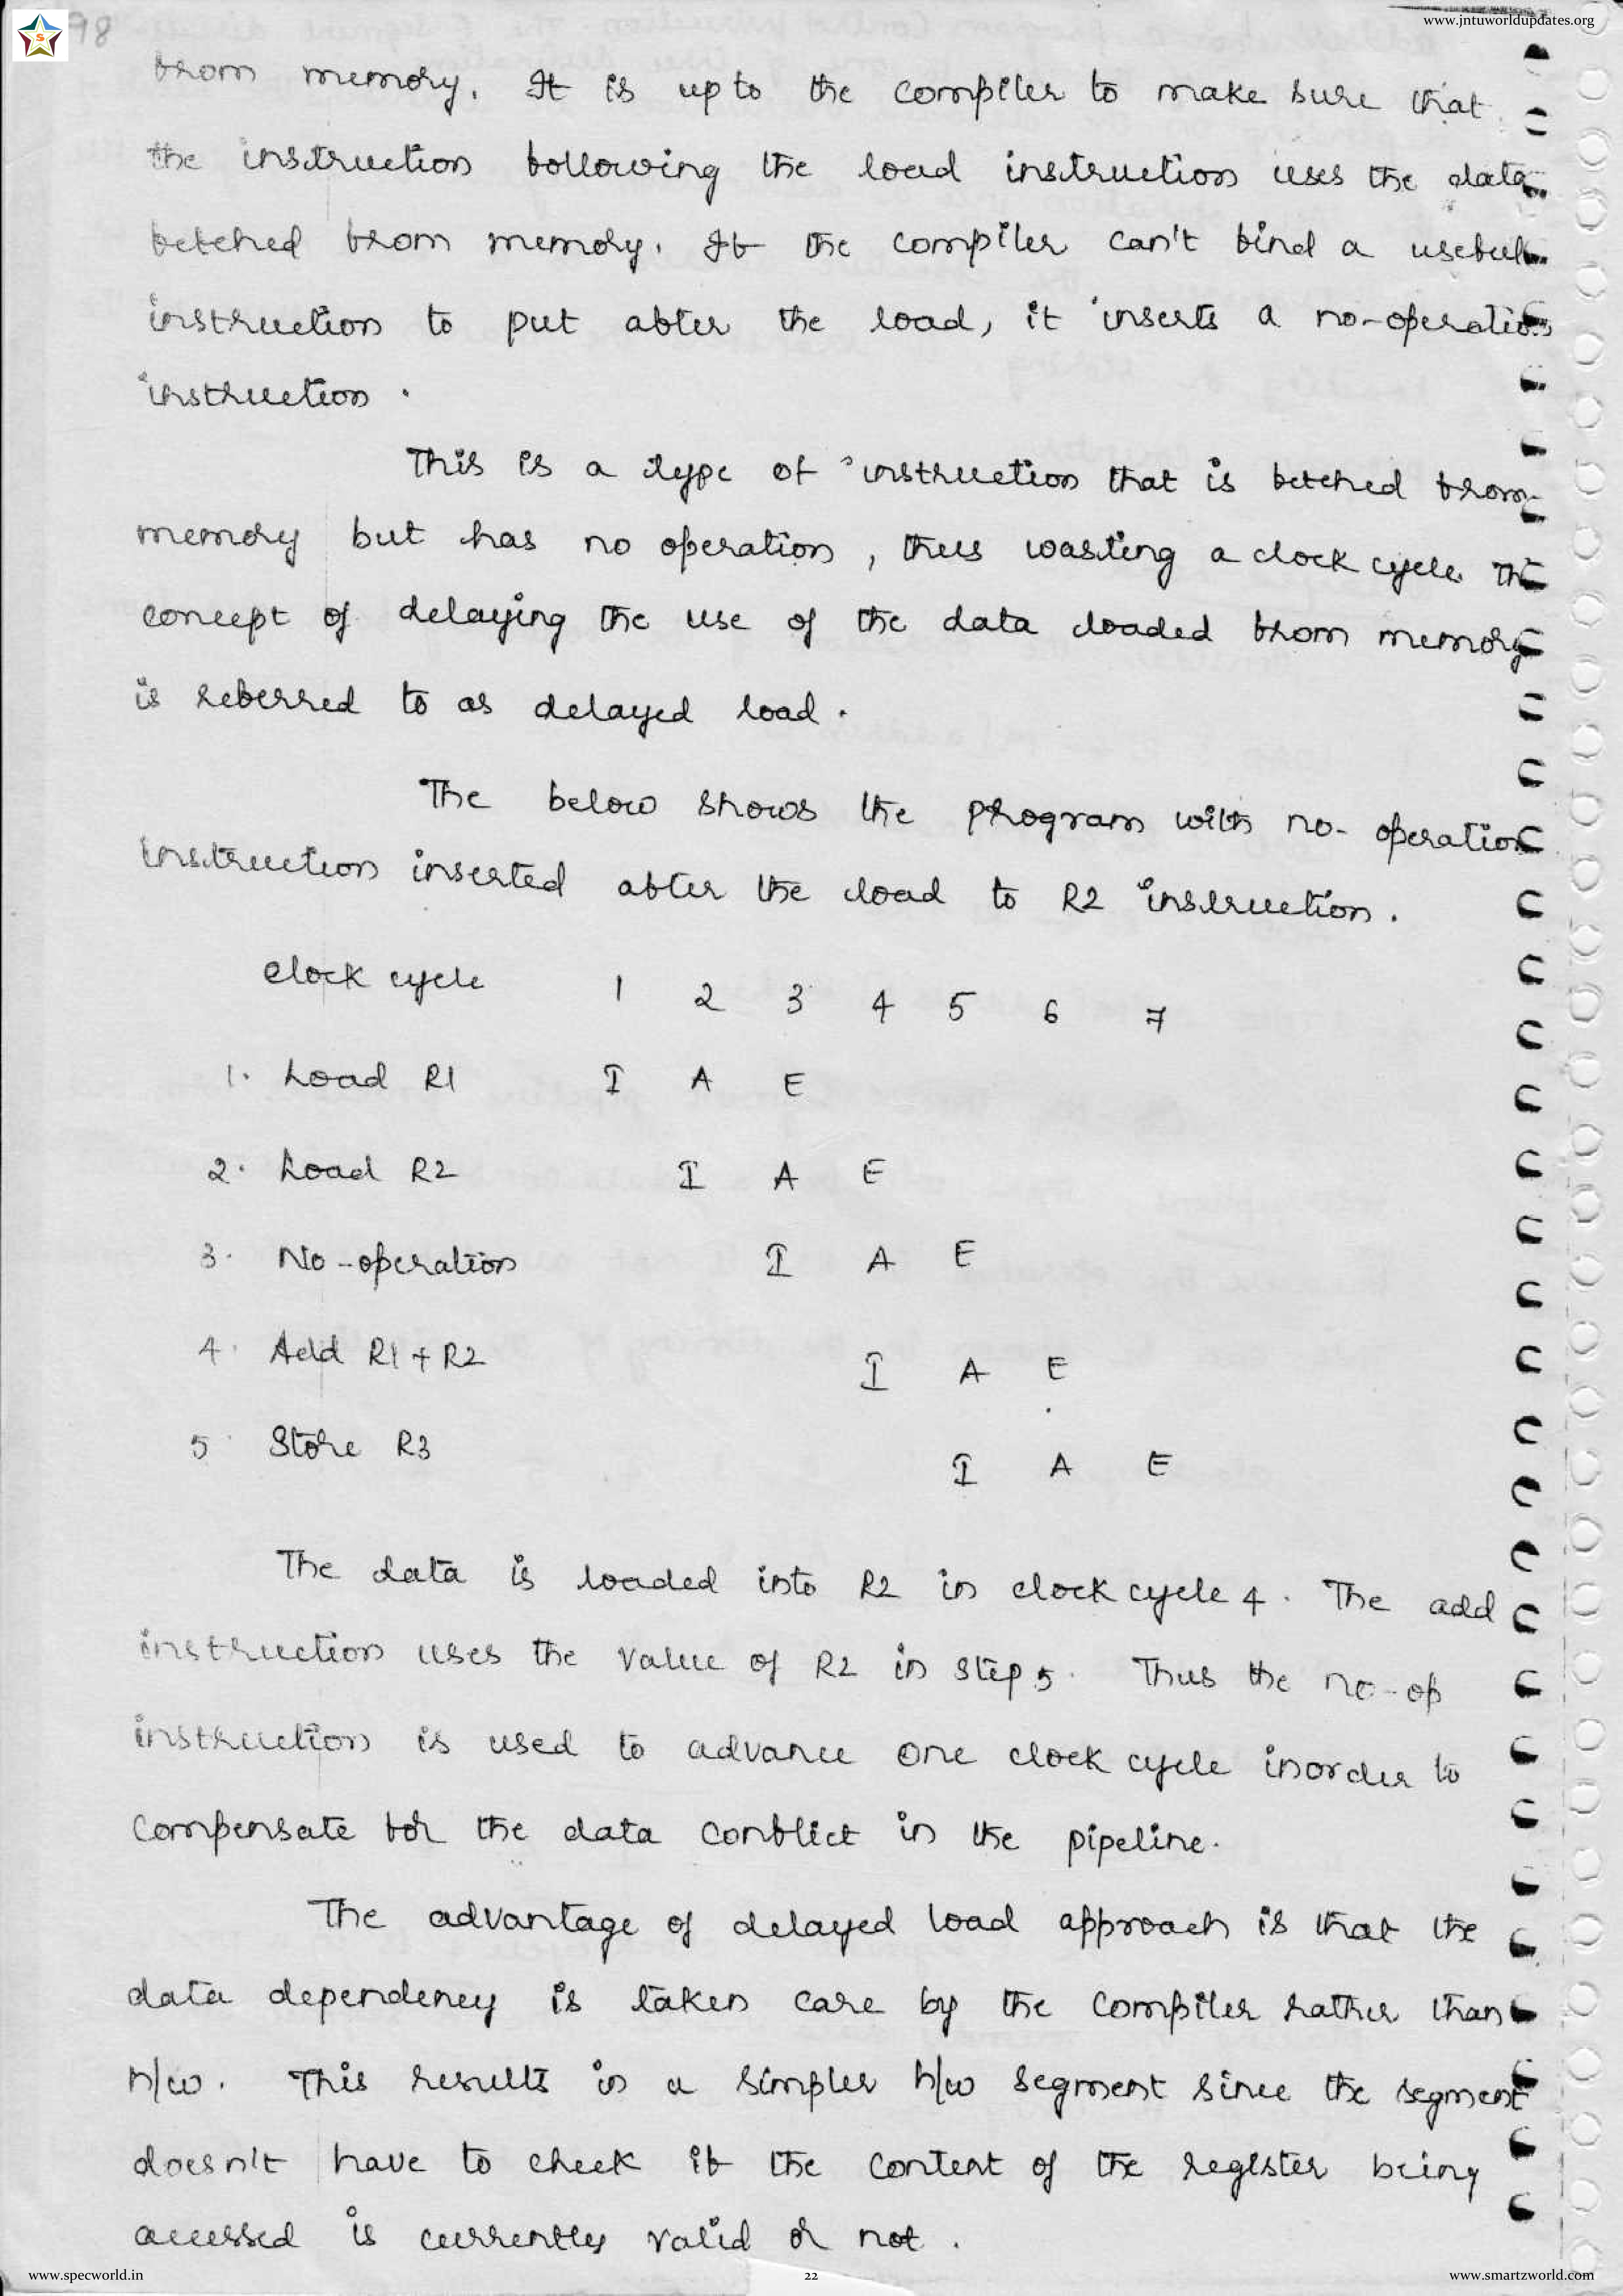 www.jntuworldupdates.org
98
from memory. It is upto the compiler to make sure that
the instruction following the load instruction uses the data
fetched from memory. If the compiler can't find a useful
instruction to put after the load, it inserts a no-operation
instruction.
This is a type of instruction that is fetched from
memory but has no operation, thus wasting a clock cycle. The
concept of delaying the use of the data loaded from memory
is referred to as delayed load.
The below shows the program with no-operation
instruction inserted after the load to R2 instruction.
Clock cycle 1 2 3 4 5 6 7
1. Load R1 I A E
2. Load R2 I A E
3. No-operation I A E
4. Add R1+R2 I A E
5. Store R3 I A E
The data is loaded into R2 in clock cycle 4. The add
instruction uses the value of R2 in step 5. Thus the no-op
instruction is used to advance one clock cycle inorder to
compensate for the data conflict in the pipeline.
The advantage of delayed load approach is that the
data dependency is taken care by the compiler rather than
h/w. This results in a simpler h/w segment since the segment
doesn't have to check if the content of the register being
accessed is currently valid or not.
www.specworld.in 22 www.smartzworld.com